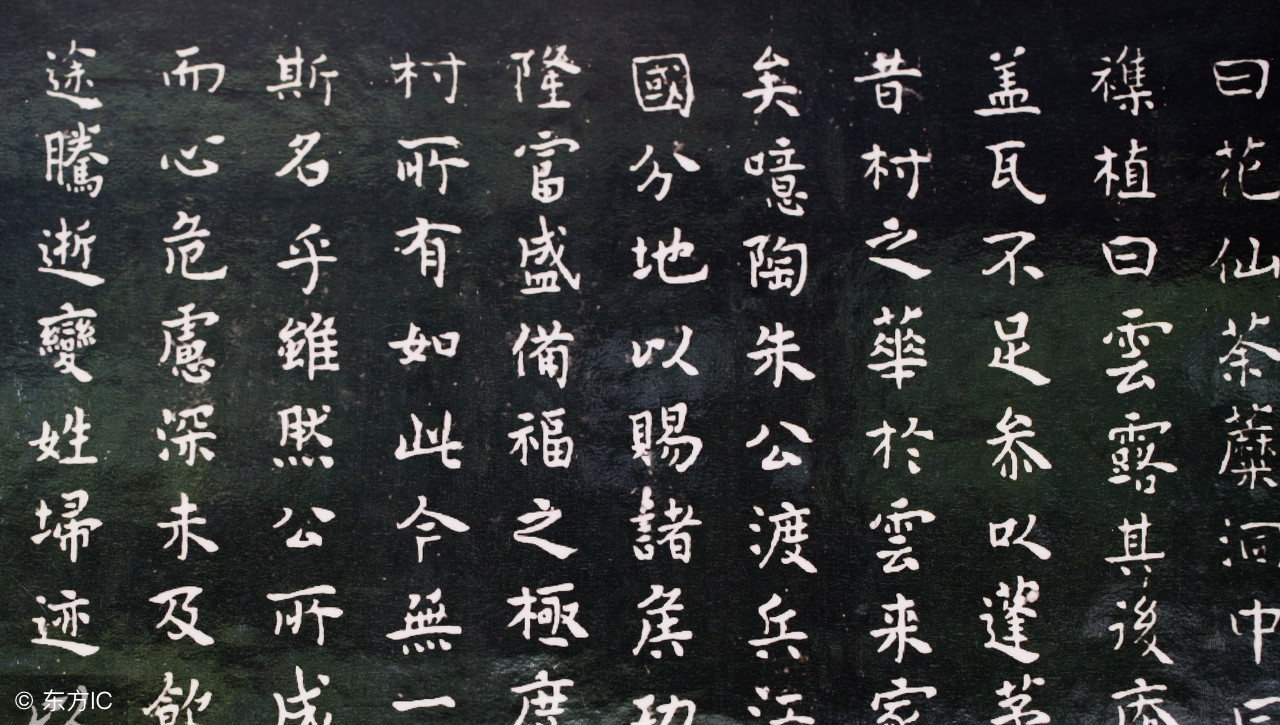 曰花仙茶蘪洞中
襍植曰雲露其後
盖瓦不足叅以蓬茅
昔村之華於雲来家
矣噫陶朱公渡兵江
國分地以賜諸矦功
隆富盛備福之極度
村所有如此今無一
斯名乎雖然公所成
而心危慮深未及飲
途騰逝變姓埽迹
© 东方IC